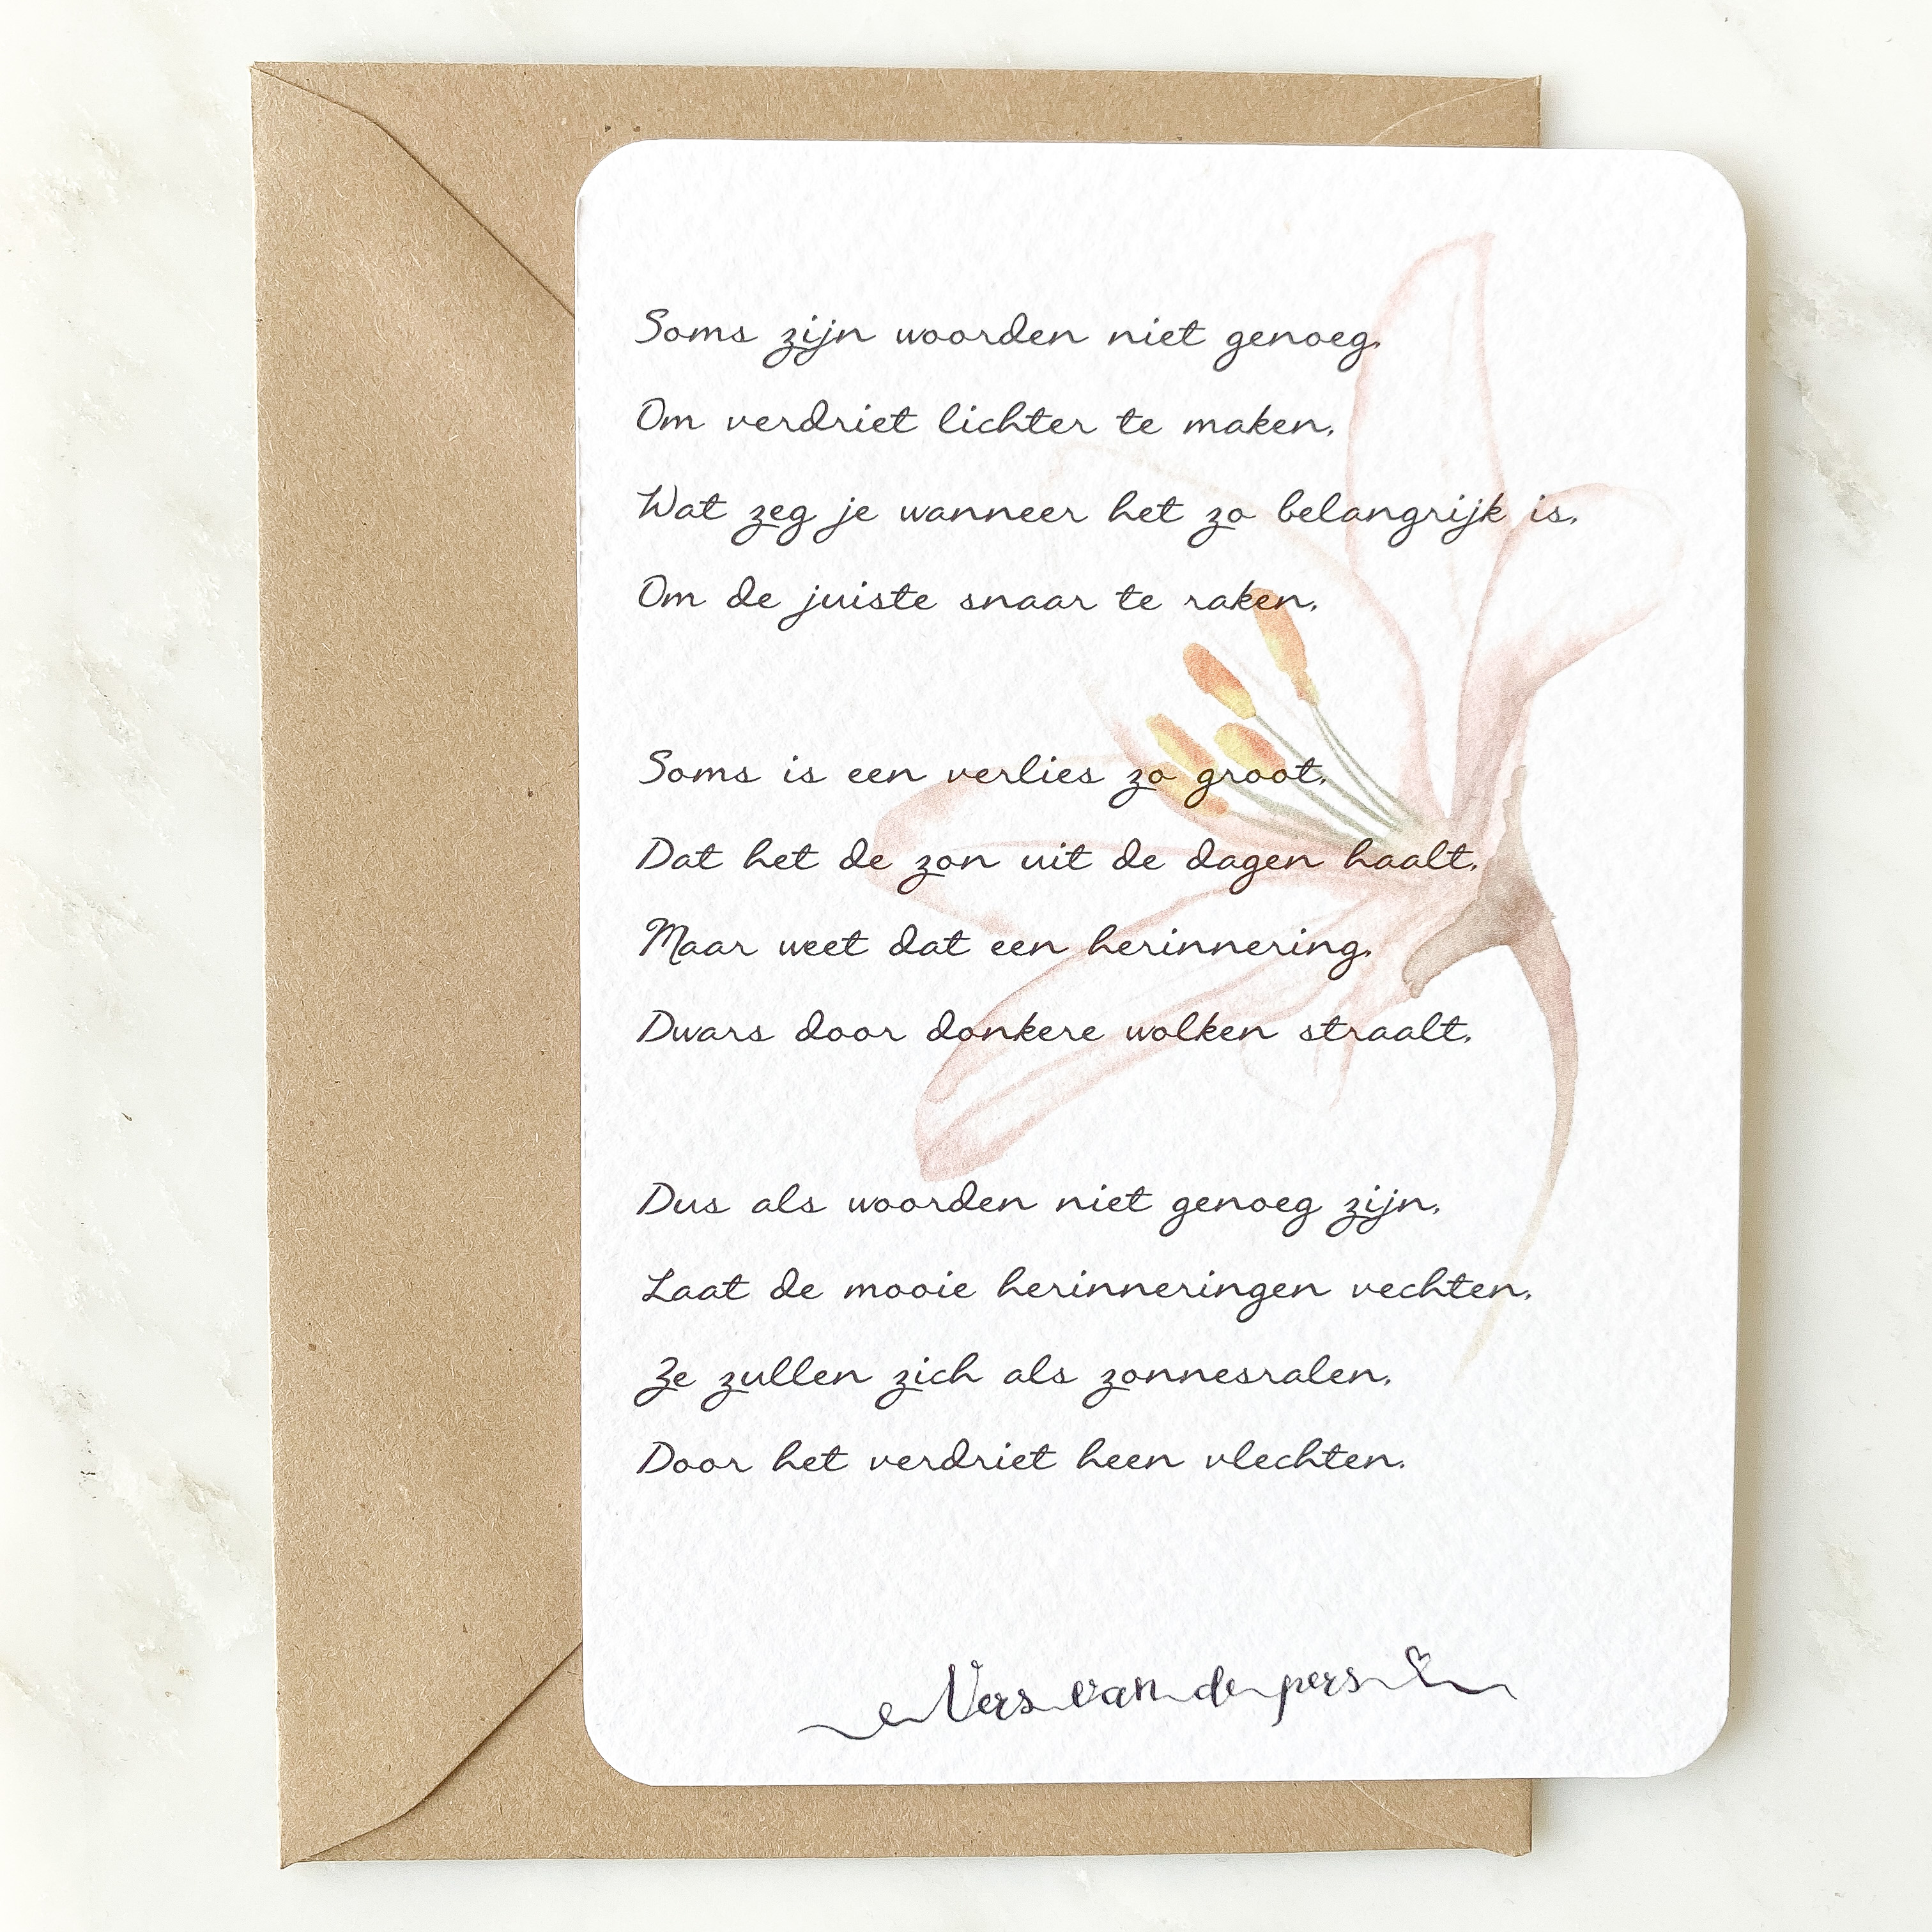 Soms zijn woorden niet genoeg,
Om verdriet lichter te maken,
Wat zeg je wanneer het zo belangrijk is,
Om de juiste snaar te raken,
Soms is een verlies zo groot,
Dat het de zon uit de dagen haalt,
Maar weet dat een herinnering,
Dwars door donkere wolken straalt,
Dus als woorden niet genoeg zijn,
Laat de mooie herinneringen vechten,
Ze zullen zich als zonnesralen,
Door het verdriet heen vlechten.
Vers van de pers